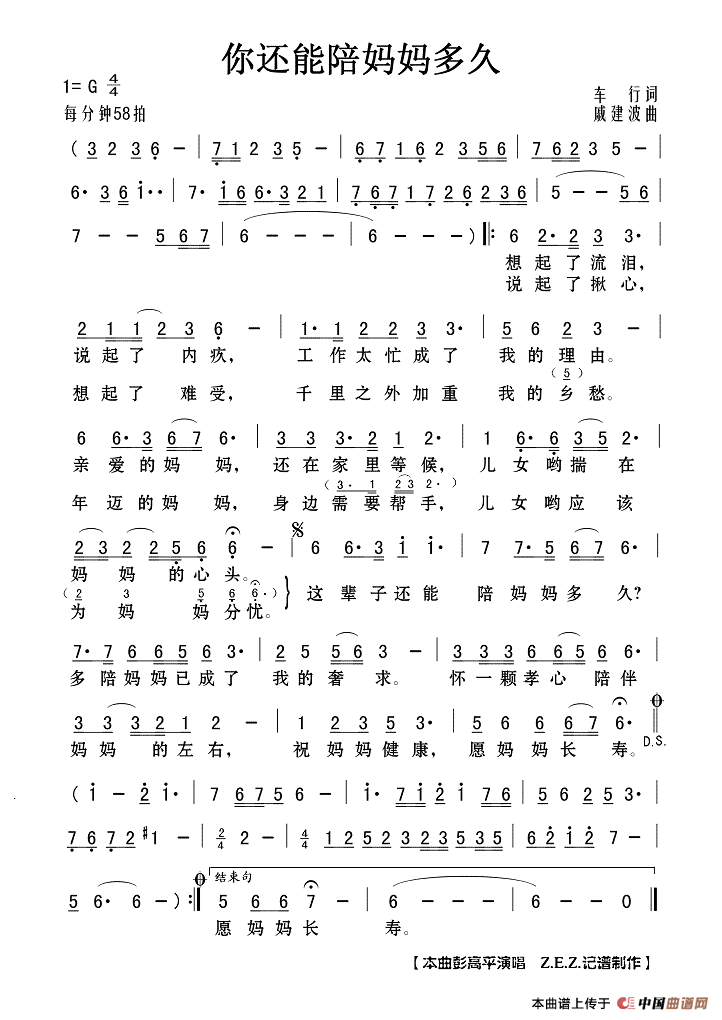 你还能陪妈妈多久
1= G 4/4
车 行 词
每分钟58拍
戚建波 曲
( 3 2 3 6 – | 7 1 2 3 5 – | 6 7 1 6 2 3 5 6 | 7 6 2 3 5 – |
6· 3 6 i·· | 7· i 6 6· 3 3 2 1 | 7 6 7 1 7 2 6 2 3 6 | 5 – – 5 6 |
7 – – 5 6 7 | 6 – – – | 6 – – ) ‖: 6 2· 2 3 3· |
想 起 了 流 泪,
说 起 了 揪 心,
2 1 1 2 3 6 – | 1· 1 2 2 3 3· | 5 6 2 3 – |
说 起 了 内 疚, 工 作 太 忙 成 了 我 的 理 由。
( 5 )
想 起 了 难 受, 千 里 之 外 加 重 我 的 乡 愁。
6 6· 3 6 7 6· | 3 3 3· 1 2 2· | 1 6· 6 3 5 2· |
亲 爱 的 妈 妈, 还 在 家 里 等 候, 儿 女 哟 揣 在
( 3· 1 2 3 2· )
年 迈 的 妈 妈, 身 边 需 要 帮 手, 儿 女 哟 应 该
2 3 2 2 5 6 6· – | 6 6· 3 i i· | 7 7· 5 6 7 6· |
妈 妈 的 心 头。
( 2 3 5 6 6· ) } 这 辈 子 还 能 陪 妈 妈 多 久?
为 妈 妈 分 忧。
7· 7 6 6 5 6 3· | 2 5 5 3 5 – | 3 3 3 6 6 5 5 |
多 陪 妈 妈 已 成 了 我 的 奢 求。 怀 一 颗 孝 心 陪 伴
3 3 3 2 1 2 – | 1 2 3 5 3· | 5 6 6 6 7 6· ‖
妈 妈 的 左 右, 祝 妈 妈 健 康, 愿 妈 妈 长 寿。 D.S.
( i – 2 i· | 7 6 7 5 6 – | i· 7 i 2 i 5 6 | 5 6 2 3 – |
7 6 7 2 #1 – | 2/4 2 – | 4/4 1 2 5 2 3 2 3 5 3 5 | 6 2 i 2 7 – |
结束句
5 6· 6 – ) :‖ 5 6 6 7 – | 6 – – – | 6 – – 0 ‖
愿 妈 妈 长 寿。
【本曲彭高平演唱 Z.E.Z.记谱制作】
本曲谱上传于 中国曲谱网